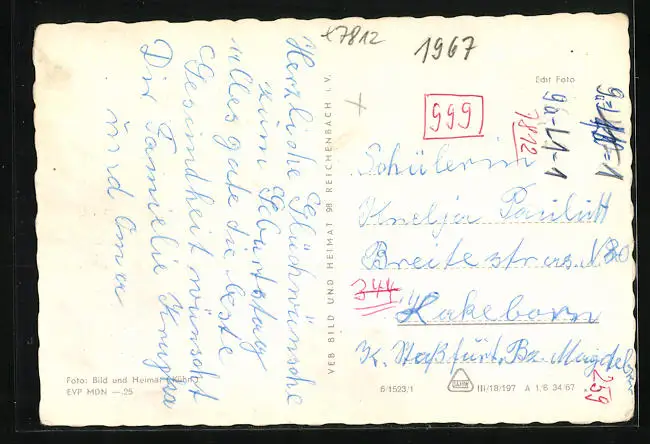 e7812
1967
Herzliche Glückwünsche
zum Geburtstag
alles gute die beste
Gesundheit wünscht
Dir Familie
und Oma
Foto: Bild und Heimat (Kühn)
EVP MDN —.25
VEB BILD UND HEIMAT 98 REICHENBACH i. V.
Echt Foto
999
7812
9b-L1-1
Schülerin
Breite stras. N 30
344
Hakeborn
K. Staßfurt, Bz. Magdeb
259
6/1523/1
III/18/197 A 1/6 34/67